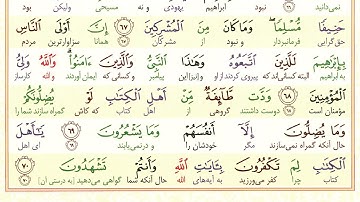 نمی‌دانید ۶۶ نبود ابراهیم یهودی و نه مسیحی ولیکن بود
حَنِيفًا مُسْلِمًا وَمَا كَانَ مِنَ الْمُشْرِكِينَ ۶۷ إِنَّ أَوْلَى النَّاسِ
حق‌گرای فرمانبردار و نبود از مشرکان همانا سزاوارترین مردم
بِإِبْرَاهِيمَ لَلَّذِينَ اتَّبَعُوهُ وَهَٰذَا النَّبِيُّ وَالَّذِينَ ءَامَنُوا وَاللَّهُ وَلِيُّ
به ابراهیم البته کسانی‌اند که پیروی کردند از او و (نیز) این پیامبر و کسانی که ایمان آوردند و الله کارساز
الْمُؤْمِنِينَ ۶۸ وَدَّت طَّائِفَةٌ مِّنْ أَهْلِ الْكِتَابِ لَوْ يُضِلُّونَكُمْ
مومنان است دوست داشتند گروهی از اهل کتاب کاش گمراه سازند شما را
وَمَا يُضِلُّونَ إِلَّا أَنفُسَهُمْ وَمَا يَشْعُرُونَ ۶۹ يَا أَهْلَ
حال آنکه گمراه نمی‌سازند مگر خودشان را و درنمی‌یابند ای اهل
الْكِتَابِ لِمَ تَكْفُرُونَ بِآيَاتِ اللَّهِ وَأَنتُمْ تَشْهَدُونَ ۷۰
کتاب چرا کفر می‌ورزید به آیه‌های الله حال آنکه شما گواهی می‌دهید (به درستی آن)